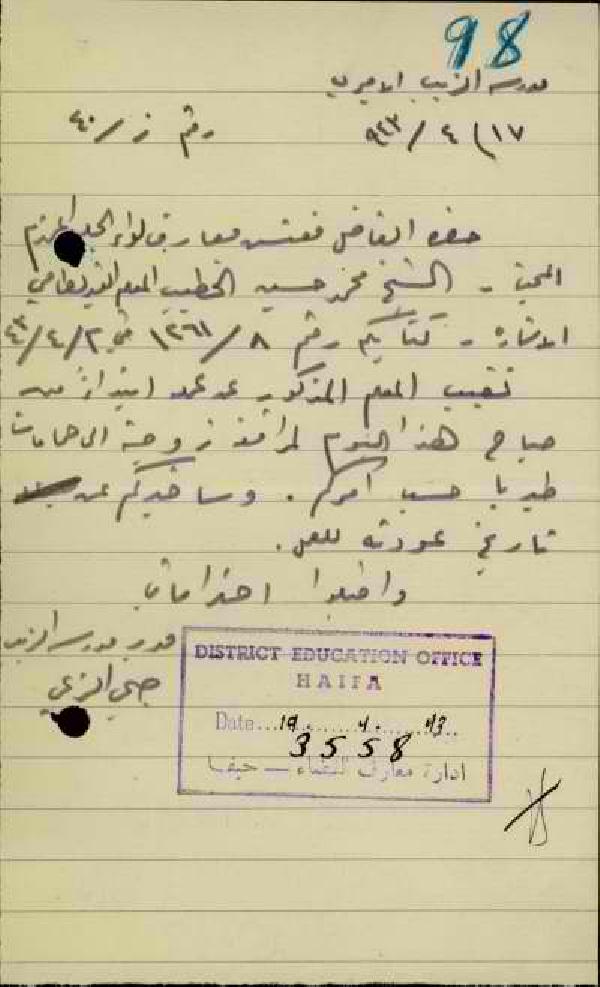 98
مدرسة الزيب الاميرية
١٧/٤/٩٤٣
رقم ز/٤٠
حضرة الفاضل مفتش معارف لواء الجليل المحترم
المبحث - الشيخ محمد حسين الخطيب المعلم
الاشارة - كتابكم رقم ١٢٦١/٨ في ٢/٤/٤٣
تغيب المعلم المذكور عن عمله ابتداء من
صباح هذا اليوم لمرافقة زوجته الى حمامات
طبريا حسب امركم. وساخبركم عن
تاريخ عودته للعمل.
واقبلوا احترامي
مدير مدرسة الزيب
DISTRICT EDUCATION OFFICE
HAIFA
Date... 19. 4. 43
3558
ادارة معارف اللواء — حيفا